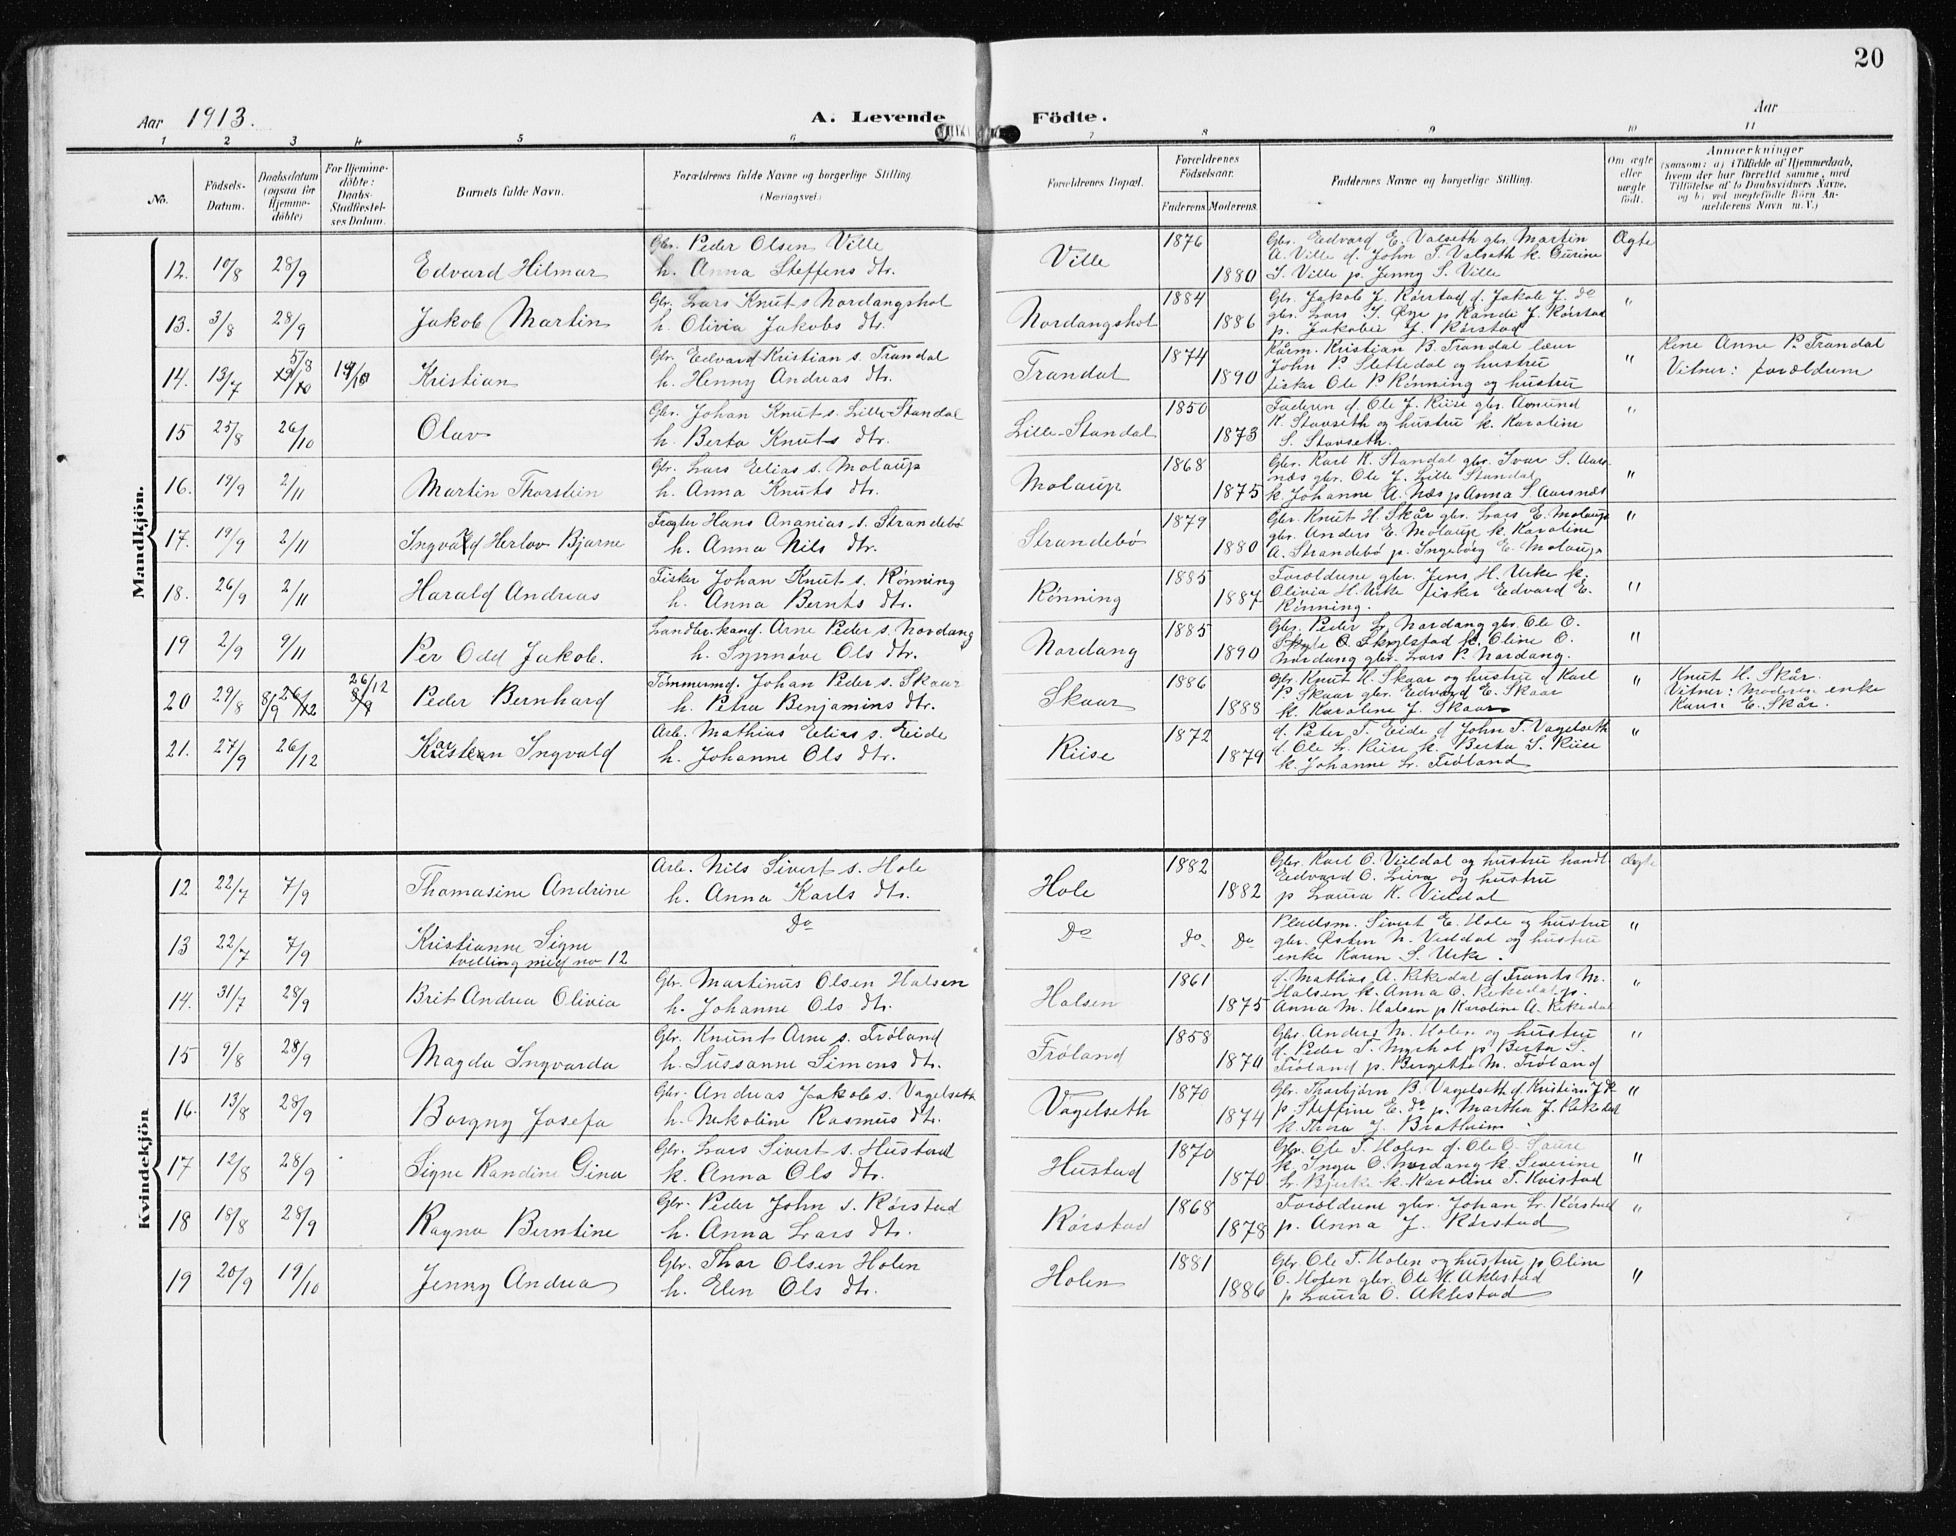 20
Aar 1913.
A. Levende Födte.
Aar
1 2 3 4 5 6 7 8 9 10 11
No.
Födsels-Datum.
Daabsdatum (ogsaa for Hjemme-döbte)
For Hjemme-döbte: Daabs-Stadfæstel-ses Datum.
Barnets fulde Navn.
Forældrenes fulde Navne og borgerlige Stilling
(Næringsvei.)
Forældrenes Bopæl.
Forældrenes Födselsaar.
Faderens. Moderens.
Faddernes Navne og borgerlige Stilling.
Om ægte eller uægte födt.
Anmærkninger
(saasom: a) i Tilfælde af Hjemmedaab, hvem der har forrettet samme, med Tilföielse af to Daabsvidners Navne, og b) ved uægtefödte Börn An-melderens Navn m. V.)
Mandkjön.
12. 10/8 28/9 Edvard Hilmar
Gbr. Peder Olsen Ville
h. Anna Steffens dtr.
Ville 1876 1880
Gbr. Edvard E. Valseth gbr. Martin
A. Ville d. John T. Valseth k. Gurine
S. Ville p. Jenny S. Ville
Ægte
13. 3/8 28/9 Jakob Martin
Gbr. Lars Knut s. Nordangshol
h. Olivia Jakobs dtr.
Nordangshol 1884 1886
Gbr. Jakob J. Rørstad d. Jakob J. do
gbr. Lars I. Øye p Randi J. Rørstad
p. Jakobie J. Rørstad
"
14. 13/7 5/8 19/10 Kristian
Gbr. Edvard Kristian s. Trandal
h. Henny Andreas dtr.
Trandal 1874 1890
Kårm. Kristian B. Trandal lærer
John P. Slettedal og hustru
fisker Ole P. Rønning og hustru
"
Kone Anne P. Trandal
Vitner: forældrene
15 25/8 26/10 Olav
Gbr. Johan Knut s. Lille-Standal
h. Berta Knuts dtr.
Lille-Standal 1850 1873
Faderen d. Ole J. Riise gbr. Asmund
K. Stavseth og hustru k. Karoline
S. Stavseth.
"
16. 19/9 2/11 Martin Thorstein
Gbr. Lars Elias s. Molaup
h. Anna Knuts dtr.
Molaup 1868 1875
Gbr. Karl K. Standal gbr. Ivar S. Aars-
næs gbr. Ole J. Lille Standal
k Johanne A. Næs p Anna S. Aarsnæs
"
17. 19/9 2/11 Ingvald Herlov Bjarne
Fragter Hans Ananias s. Strandebø
h. Anna Nils dtr.
Strandebø 1879 1880
Gbr. Knut H. Skår gbr. Lars E. Molaup
gbr. Anders E. Molaup k. Karoline
A. Strandebø p. Ingeborg E. Molaup
"
18. 26/9 2/11 Harald Andreas
Fisker Johan Knut s. Rønning
h. Anna Bernts dtr.
Rønning 1885 1887
Foreldrene gbr. Jens H. Urke k.
Olivia H. Urke fisker Edvard E.
Rønning.
"
19 2/9 9/11 Per Odd Jakob.
Landbr. kand. Arne Peder s. Nordang
h. Synnøve Ols dtr.
Nordang 1885 1890
Gbr. Peder Lr. Nordang gbr. Ole O.
O. Skylstad k. Oline O.
Nordang gbr. Lars P. Nordang.
"
20 29/8 8/9 26/12 26/12 Peder Bernhard
Tømmermd. Johan Peder s. Skaar
h. Petra Benjamins dtr.
Skaar 1886 1888
Gbr Knut H. Skaar og hustru d Karl
P. Skaar gbr. Edvard E. Skaar
k. Karoline J. Skaar
"
Knut H. Skår.
Vitner: Moderen enke
E. Skår.
21. 27/9 26/12 Ingvald
Arb. Mathias Elias s. Eide
h. Johanne Ols dtr.
Riise 1872 1879
d. Peter T. Eide d John T. Vagelseth
d. Ole L. Riise k. Berta S. Riise
k. Johanne Lr. Frøland
"
Kvindekjön
12 22/7 7/9 Thomasine Andrine
Arb. Nils Sivert s. Hole
h. Anna Karls dtr.
Hole 1882 1882
Gbr. Karl O. Viddal og hustru handl
Edvard O. Liva og hustru
p Laura K. Viddal
Ægte
13 22/7 7/9 Kristianne Signe
tvilling med no 12
Do
Do Do Do
Pladsm. Sivert E. Hole og hustru
gbr. Østen N. Viddal og hustru
enke Karen S. Urke.
"
14. 31/7 28/9 Brit Andrea Olivia
Gbr. Martinus Olsen Halsen
h. Johanne Ols dtr.
Halsen 1861 1875
d. Mathias A. Rekedal d Frants M.
Halsen k. Anna O. Rekedal p.
Anna M. Halsen p Karoline A. Rekedal
"
15 9/8 28/9 Magda Ingvarda
Gbr. Knunt Arne s. Frøland
h. Sussanne Simons dtr.
Frøland 1858 1870
Gbr. Anders M. Holen og hustru
d. Peder T. Myrhol p Berta S.
Frøland p Bergette M. Frøland
"
16. 13/8 28/9 Borgny Josefa
Gbr. Andreas Jakob s. Vagelseth
h. Nekoline Rasmus dtr.
Vagelseth 1870 1874
Gbr Thorbjørn B. Vagelseth d Kristian J do
p. Steffine E. do p. Martha J. Rekedal
k Thora J. Bratheim
"
17 12/8 28/9 Signe Randine Gina
Gbr. Lars Sivert s. Hustad
k. Anna Ols dtr.
Hustad 1870 1870
Gbr. Ole T. Holen d. Ole O. Saure
k. Inga O. Nordang k. Severine
Lr. Bjerke k. Karoline T. Kvistad
"
18 18/8 28/9 Ragna Berntine
Gbr. Peder John s. Rørstad
h. Anna Lars dtr.
Rørstad 1868 1878
Foreldrene gbr. Johan Lr. Rørstad
p. Anna J. Rørstad
"
19 20/9 19/10 Jenny Andrea
Gbr. Thor Olsen Holen
h. Elen Ols dtr.
Holen 1881 1886
Gbr Ole T. Holen og hustru p Oline
O. Holen gbr. Ole K. Aklestad
p Laura O. Aklestad
"